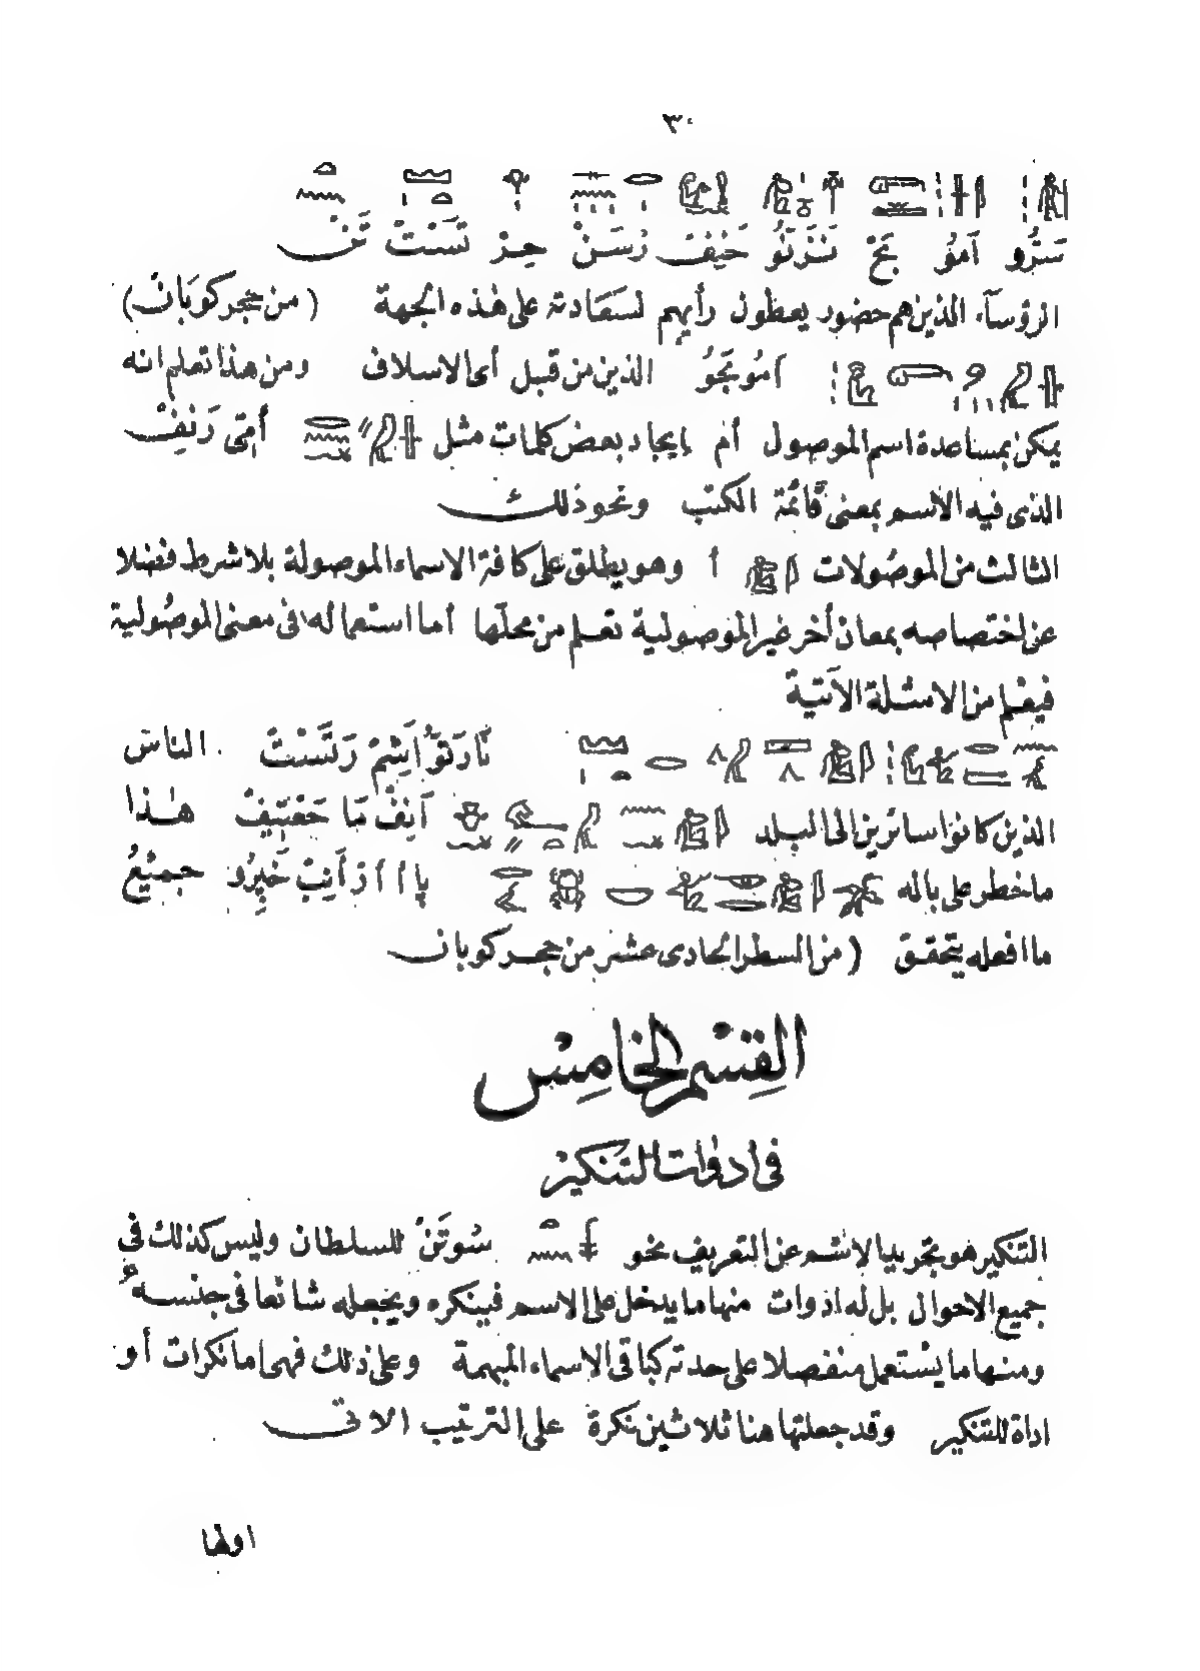 ٣٠
سَرُّو آمُو بَحْ نَنْزَنُو حَيْفْ رُسَنْ حِرْ تَسَنْتْ تَنْ
الرؤسآء الذين هم حضور يعطون رأيهم لسعادته على هذه الجهة (من حجر كوبان)
آمُو بَحُو الذين من قبل أى الاسلاف ومن هذا تعلم انه
يمكن بمساعدة اسم الموصول أم إيجاد بعض كلمات مثل أمّى رَنْفْ
الذى فيه الاسم بمعنى قائمة الكتب ونحو ذلك
الثالث من الموصولات أ وهو يطلق على كافة الاسماء الموصولة بلا شرط فضلا
عن اختصاصه بمعان أخر غير الموصولية تعلم من محلها أما استعماله فى معنى الموصولية
فيعلم من الامثلة الآتية
نَارَتَوْ اَشِمْ رَتَّسْتْ الناس
الذين كانوا سائرين الى البلد آنِفْ مَا حَعْتِيفْ هٰذا
ما خطر على باله پا أ أرْ أَنِبْ خَپِرُو جميع
ما افعله يتحقق (من السطر الحادى عشر من حجر كوبان
القِسْم الخامِسْ
فى ادوات التنكير
التنكير هو تجريد الاسم عن التعريف نحو سُوتَنْ للسلطان وليس كذلك فى
جميع الاحوال بل له ادوات منها ما يدخل على الاسم فينكره ويجعله شائعا فى جنسه
ومنها ما يستعمل منفصلا على حدته كباقى الاسماء المبهمة وعلى ذلك فهى اما نكرات أو
اداة للتنكير وقد جعلتها هنا ثلاثين نكرة على الترتيب الاتى
اولها